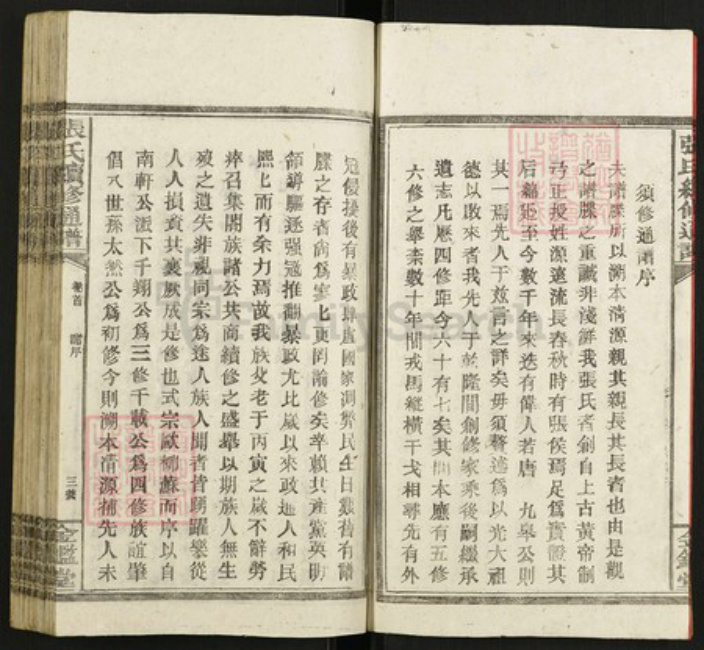 張氏續修通譜
須修通譜序
夫譜牒所以溯本清源親其親長其長者也由是觀
之譜牒之重誠非淺鮮我張氏者創自上古黃帝制
弓正授姓源遠流長春秋時有張侯焉足為實證其
后綿延至今數千年來迭有偉人若唐 九皋公則
其一焉先人于茲言之詳矣毋須贅述為以光大祖
德以啟來者我先人于乾隆間創修家乘後嗣繼承
遺志凡歷四修距今六十有七矣其間本應有五修
六修之舉柰數十年間戎馬縱橫干戈相尋先有外
寇侵擾後有暴政肆虐國家凋弊民生日艱舊有譜
牒之存者尚為寥匕更罔論修矣幸賴共產黨英明
領導驅逐强寇推翻暴政尤比嵗以來政通人和民
熙匕而有余力焉故我族父老于丙寅之嵗不辭勞
瘁召集閤族諸公共商續修之盛舉以期族人無生
歿之遺失非視同宗為途人族人聞者皆踴躍樂從
人人損資共襄厥成是修也式宗歐柳蘇而序以自
南軒公派下千翔公為三修千載公為四修族誼肇
倡八世孫太然公為初修今則溯本清源補先人未
張氏續修通譜
卷首
譜序
三義
金鑑堂
金鑑堂
FamilySearch